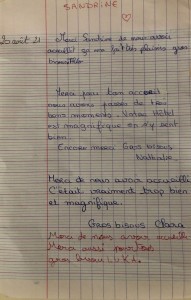 SANDRINE
Merci Sandrine de nous avoir
accueilli ça me fait très plaisir gros
Merci pour ton accueil
nous avons passer de très
bon moments. Votre Hôtel
est magnifique on s'y sent
bien.
Encore merci Gros bisous
Nathalie.
Merci de nous avoir accueilli
C'était vraiment trop bien
et magnifique.
Gros bisous Clara
Merci de nous avoir accueilli
Merci aussi
gros bisous